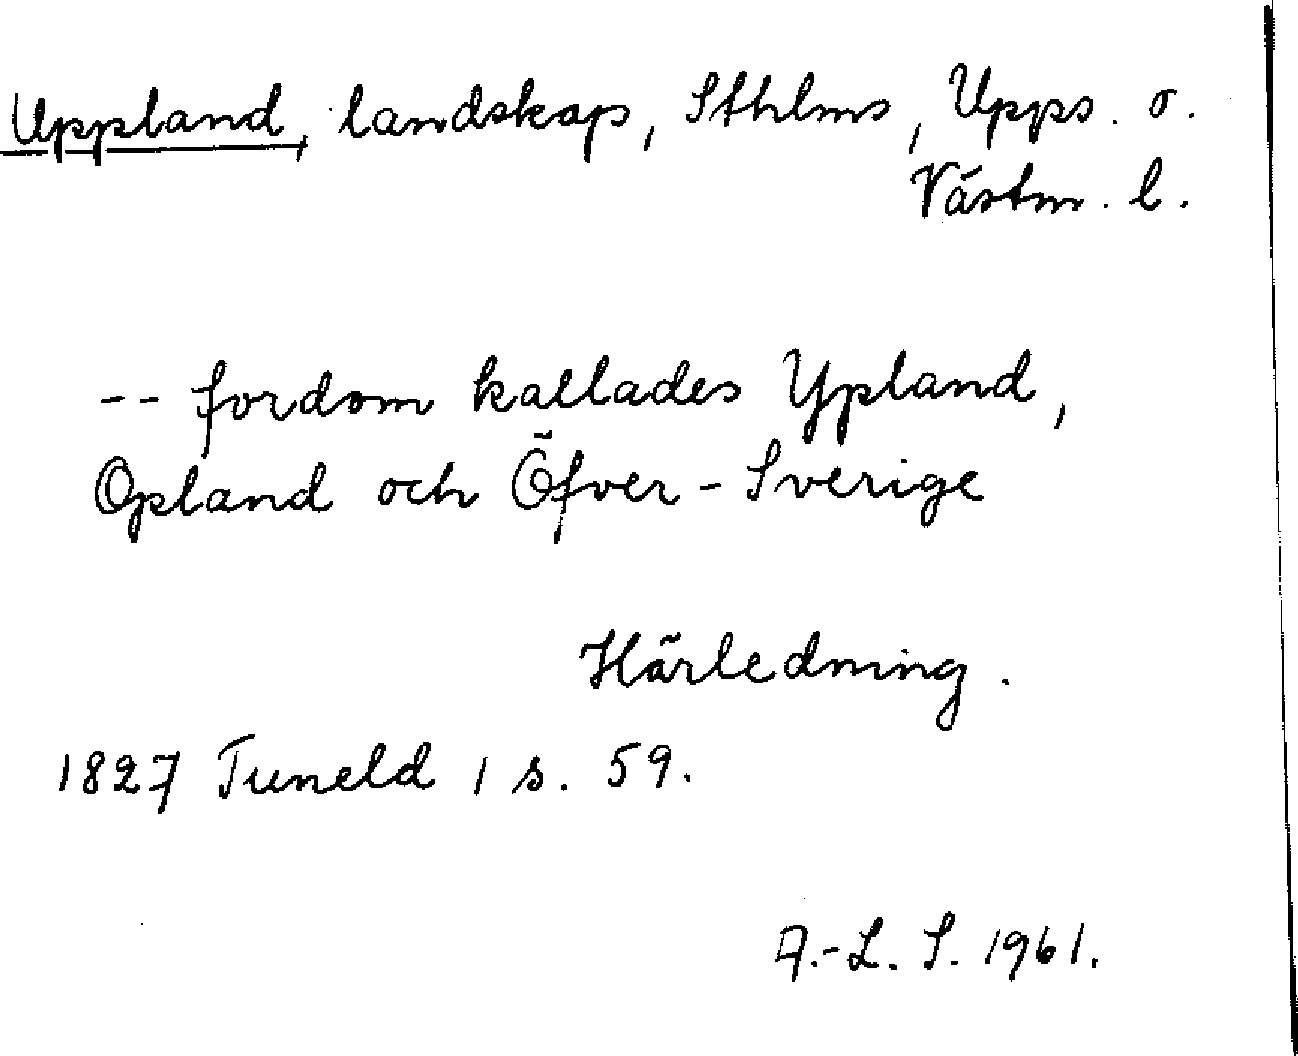 Uppland, landskap, Sthlms, Upps. o.
Västm. l.
-- fordom kallades Ypland,
Opland och Öfver-Sverige
Härledning.
1827 Tuneld 1 s. 59.
A.-L. S. 1961.